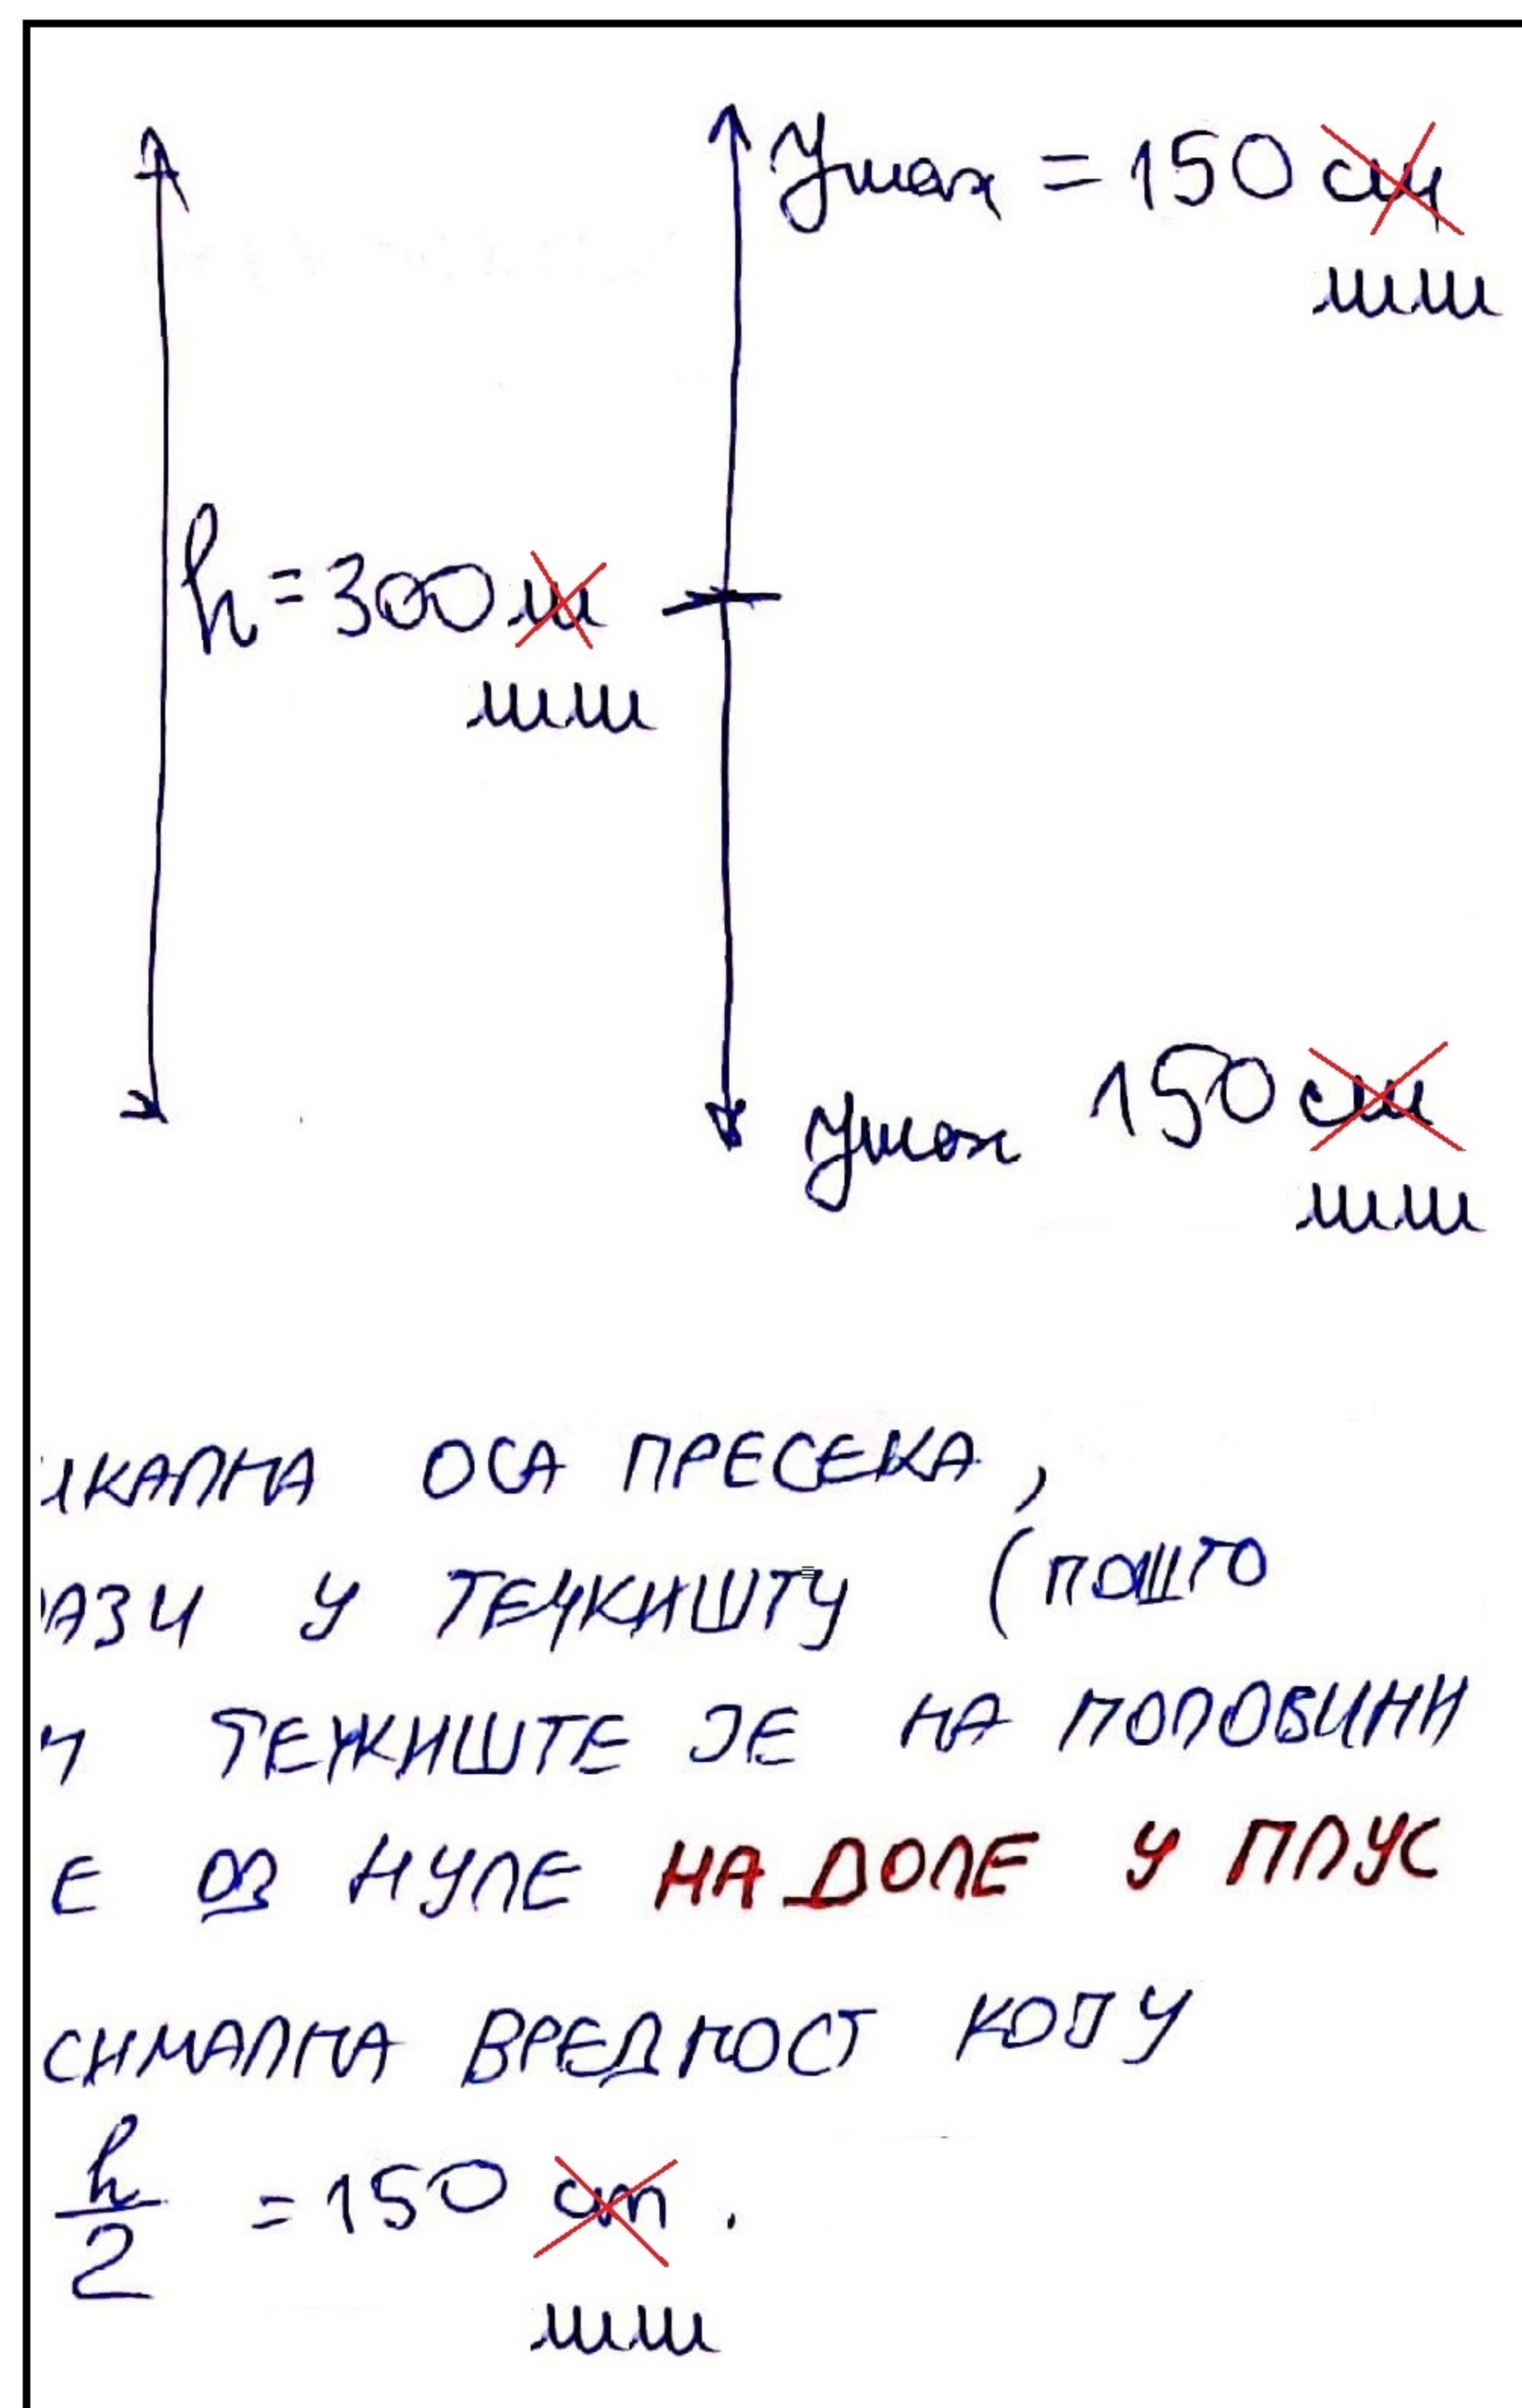 ymax = 150 см
mm
h = 300 m
mm
ymax 150 cm
mm
ИКАЛНА ОСА ПРЕСЕКА,
АЗИ У ТЕЧКИШТУ (ПОШТО
И ТЕЖИШТЕ ЈЕ НА ПОЛОВИНИ
Е ОД НУЛЕ НА ДОЛЕ У ПЛУС
СИМАЛНА ВРЕДНОСТ КОЈУ
h/2 = 150 cm.
mm